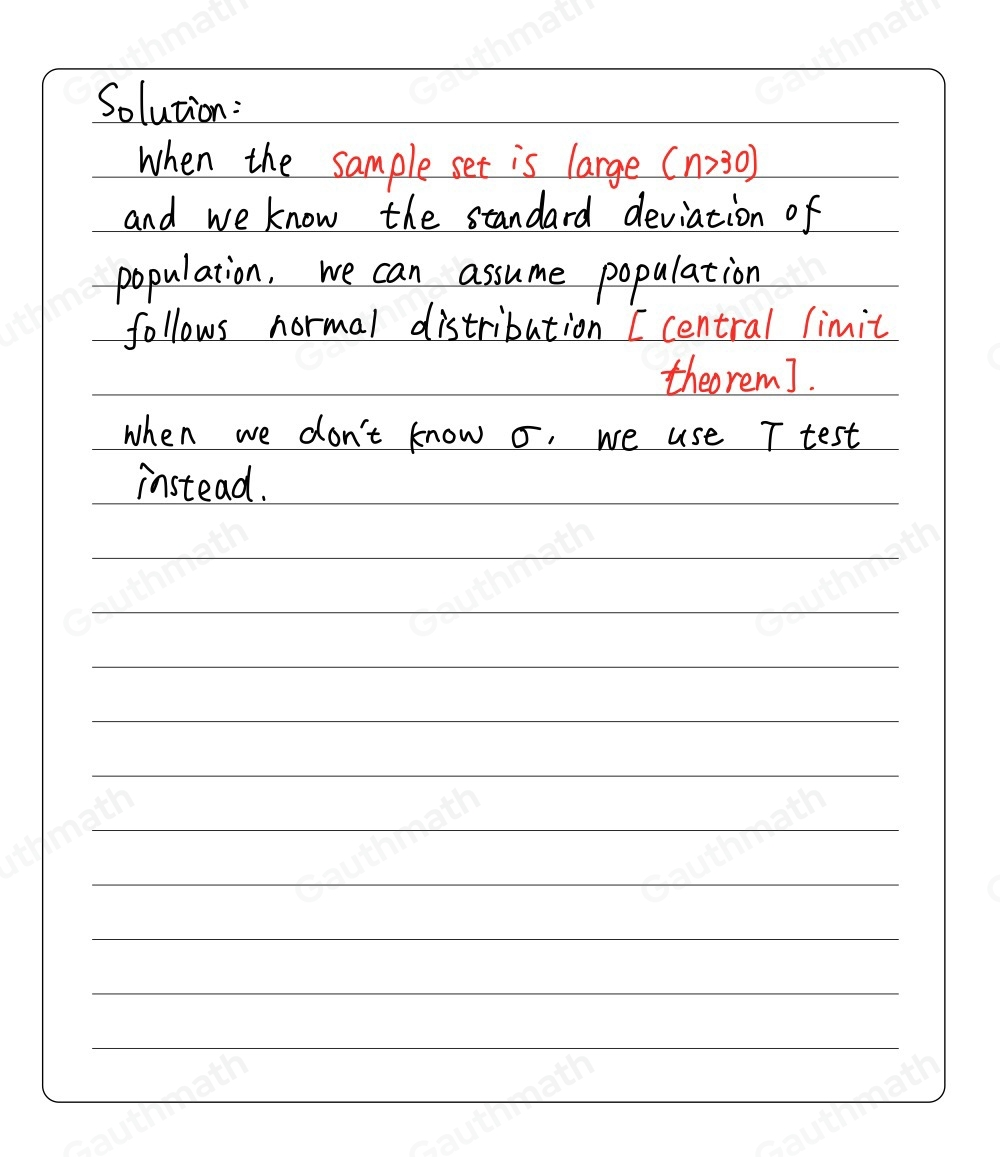 Solution:
When the sample set is large (n>30)
and we know the standard deviation of
population, we can assume population
follows normal distribution [central limit
theorem].
when we don't know σ, we use T test
instead.
Gauthmath